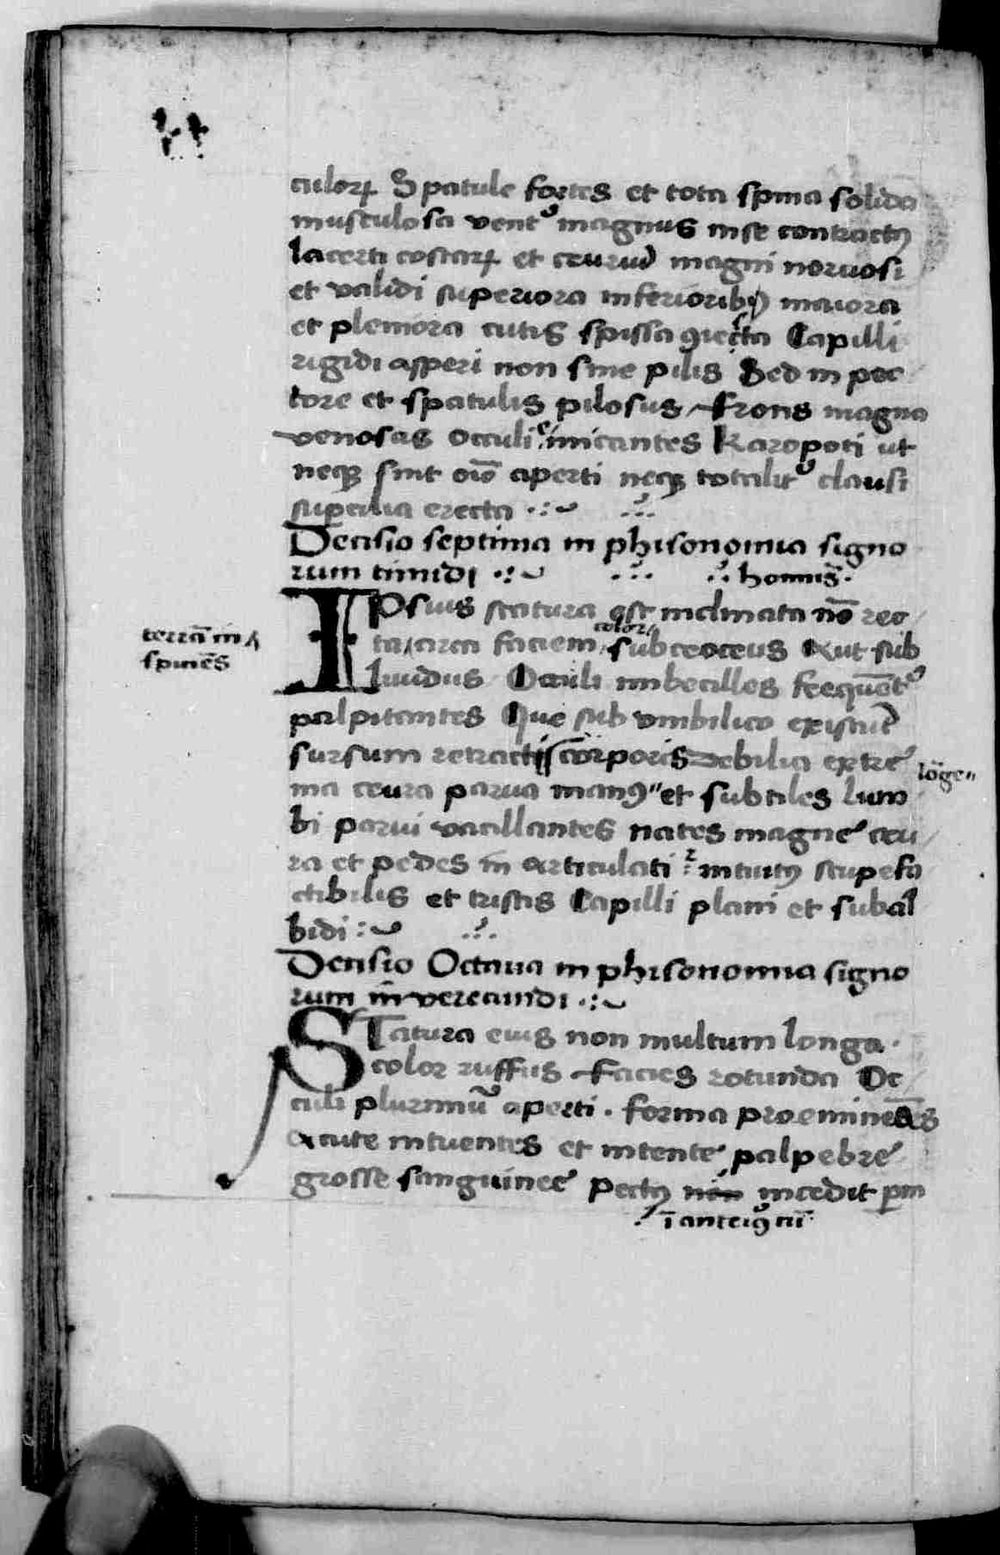 culorꝝ Spatule fortes et tota spina solida
musculosa ventꝰ magnus in se contractꝰ
lacerti costarꝝ et crurum magni neruosi
et validi superiora inferioribꝫ maiora
et pleniora cutis spissa Capilli
rigidi asperi non sine pilis Sed in pec
tore et spatulis pilosus frons magna
venosas occuli micantes Karopoti ut
neqꝫ sint oīo aperti neqꝫ totalitꝰ clausi
supercilia erecta
Decisio septima in phisonomia signo
rum timidi
hominis
IPsius statura est inclinata nō rec
terrā in
spiciēs
color
ta circa faciem subcroceus Aut sub
liuidus Oculi imbecilles frequēt
palpitantes Que sub vmbilico existūt
sursum retractis corporis debilia extre
lōge
ma crura parua manꝰ et subtiles lum
bi parui vacillantes nates magne cru
ra et pedes in articulati intuitꝰ stupefa
ctibilis et tristis Capilli plani et subal
bidi
Decisio Octaua in phisonomia signo
rum inverecundi
STatura eius non multum longa
color ruffus facies rotunda Oc
culi plurimū aperti forma proeminēs
Acute intuentes et intente palpebre
grosse sanguinee Pectꝰ incedit